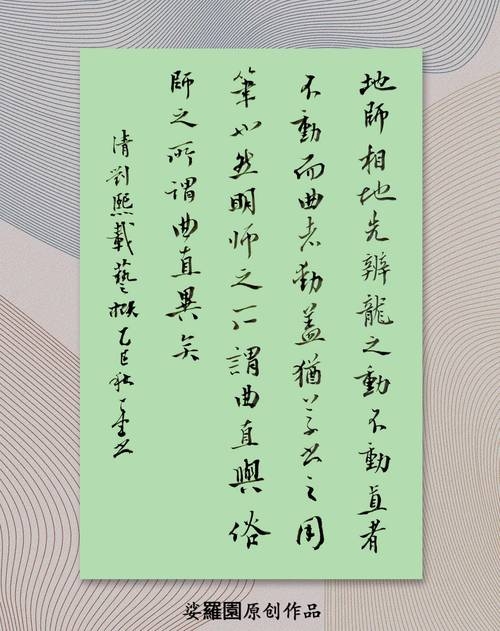 地師相地先辨龍之動不動直者
不動而曲者動蓋猶草书之用
筆也然明师之所謂曲直與俗
師之所謂曲直異矣
清劉熙載藝概乙巳秋
娑羅園原创作品